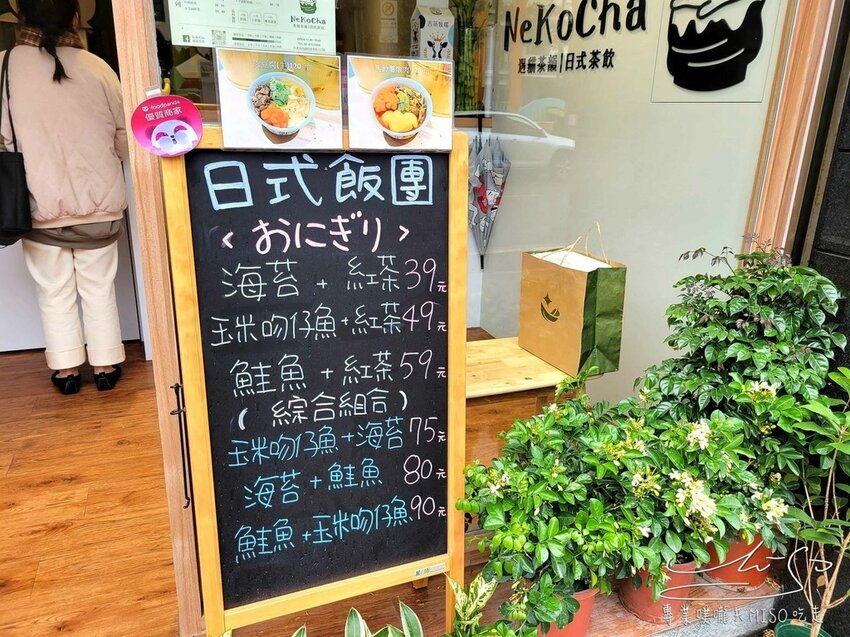 NeKoCha
NeKoCha
選緻茶韻|日式茶飲
foodpanda
優質商家
日式飯團
<おにぎり>
海苔 + 紅茶39元
玉米吻仔魚+紅茶49元
鮭魚 + 紅茶59元
(綜合組合)
玉米吻仔魚+海苔75元
海苔+鮭魚 80元
鮭魚+玉米吻仔魚90元
專業噗嚨共MISO吃走